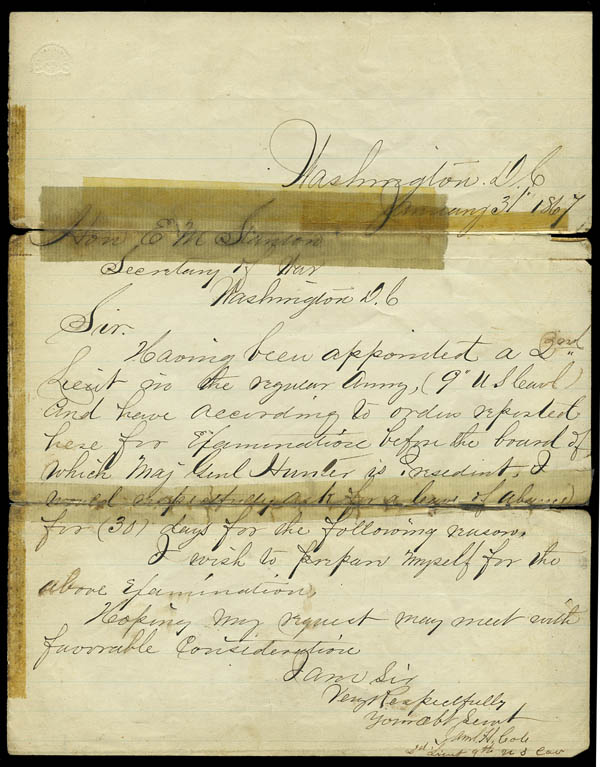 Washington. D. C
January 31st 1867
Hon E M Stanton
Secretary of War
Washington D. C
Sir.
Having been appointed a 2nd
Lieut in the regular Army, (9" U S Cavl)
And have according to orders reported
here for Examination before the board of
which Maj Genl Hunter is President, I
would respectfully ask for a leave of absence
for (30) days for the following reason.
I wish to prepare myself for the
above Examination.
Hoping my request may meet with
favorable Consideration
I am Sir
Very Respectfully
Your obt Servt
2d Lieut 9th U S Cav